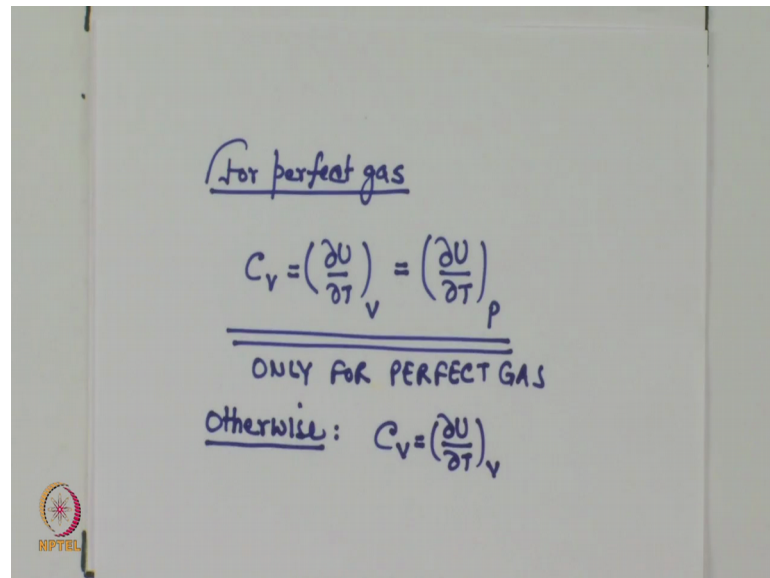 For perfect gas
C_V = (∂U/∂T)_V = (∂U/∂T)_P
ONLY FOR PERFECT GAS
Otherwise: C_V = (∂U/∂T)_V
NPTEL